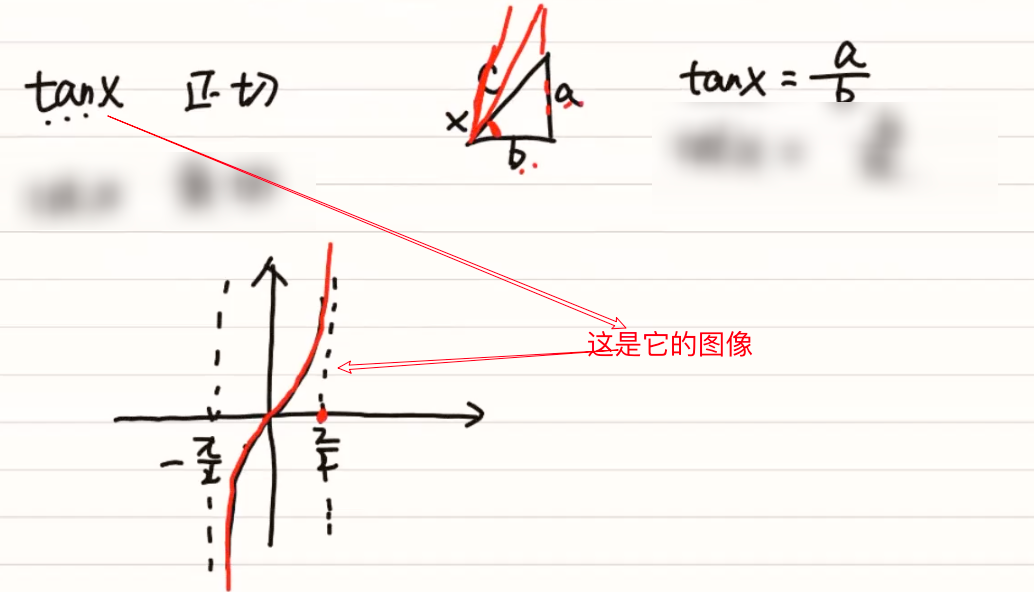 tanx 正切
c
x
a
b
tanx = a/b
这是它的图像
-π/2